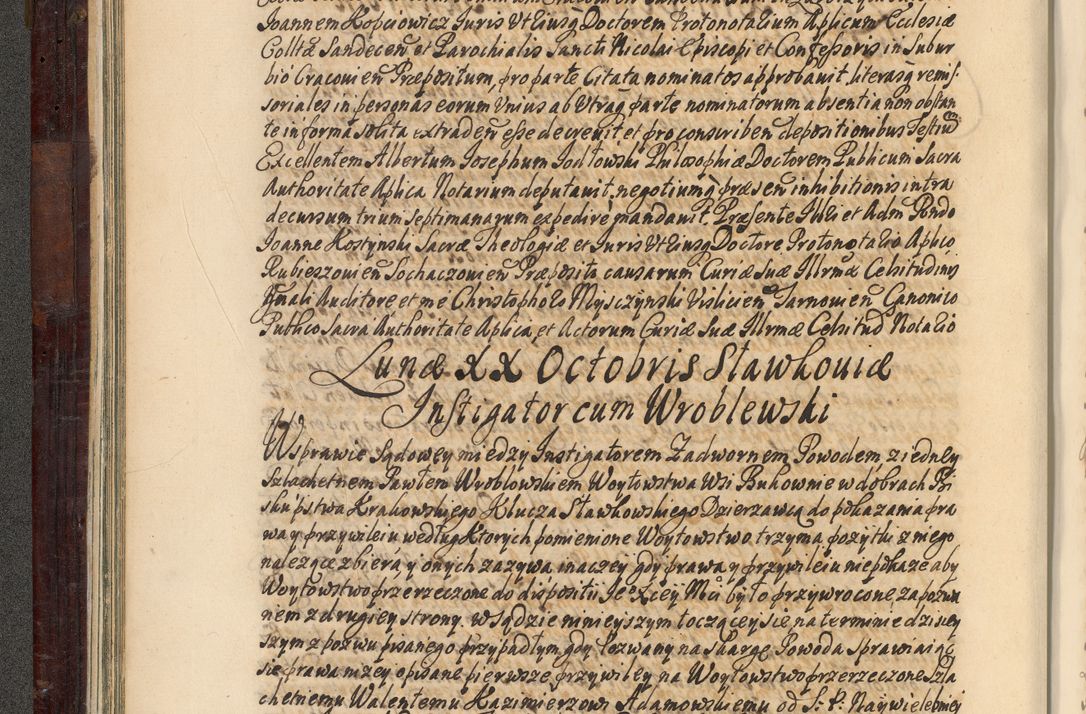 Joannem Kopciowicz Juris Vtriusq Doctorem Protonotarium Aplicum Ecclesiæ
Colltæ Sandecen et Parochialis Sancti Nicolai Episcopi et Confessoris in Subur
bio Cracovien Præpositum, pro parte Citata nominatos approbavit, literasq remis-
soriales in personas eorum Vnius ab Vtraq parte nominatorum absentia non obstan
te in forma solita extraden esse decrevit, et pro conscriben depositionibus Testiu
Excellentem Albertum Josephum Jodłowski Philosophiæ Doctorem Publicum Sacra
Authoritate Aplica Notarium deputavit, negotiumq præsen inhibitionis intra
decursum trium septimanarum expedire mandavit. Præsente Illri et Adm Rndo
Joanne Kostynski Sacræ Theologiæ et Juris Vtriusq Doctore Protonotario Aplico
Rubieszovien Sochaczovien Præposito causarum Curiæ Suæ Illrmæ Celsitudinis
Gnali Auditore et me Christophoro Mysczynski Vislicien Tarnovien Canonico
Publico Sacra Authoritate Aplica, et Actorum Curiæ Suæ Illrmæ Celsitud Notario
Lunæ XX Octobris Slawkoviæ
Instigator cum Wroblewski
W sprawie Sądowey między Instigatorem Zadwornem Powodem z iedney
Szlachetnem Pawłem Wroblowskiem Woytowstwa Wsi Bukownie w dobrach Bi
skupstwa Krakowskiego Klucza Sławkowskiego Dzierzawcą do pokazania pra
wa y przywileiu według Ktorych pomienione Woytowstwo trzyma pozytki z niego
nalezące zbiera, y onych zazywa inaczey gdy prawa y przywileiu nie pokaze aby
Woytowstwo przerzeczone do dispositii Jeo Xcey Mci było przywrocone zapozwa
nem z drugiey strony w Sądzie ninieyszym toczącey się na terminie dzisiey
szym z pozwu pisanego przypadłym gdy Pozwany na Skargę Powoda sprawiaiąc
się prawa nizey opisane pierwsze przywiley na Woytowstwo przerzeczone Szla
chetnemu Walentemu Kazimierzowi Adamowskiemu od S: P: Naywielebniey